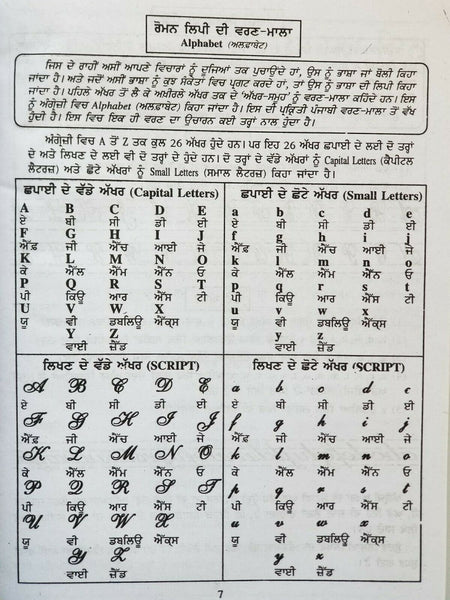 ਰੋਮਨ ਲਿਪੀ ਦੀ ਵਰਣ-ਮਾਲਾ
Alphabet (ਅਲਫ਼ਾਬੇਟ)
ਜਿਸ ਦੇ ਰਾਹੀਂ ਅਸੀਂ ਆਪਣੇ ਵਿਚਾਰਾਂ ਨੂੰ ਦੂਜਿਆਂ ਤਕ ਪੁਚਾਉਂਦੇ ਹਾਂ, ਉਸ ਨੂੰ ਭਾਸ਼ਾ ਜਾਂ ਬੋਲੀ ਕਿਹਾ
ਜਾਂਦਾ ਹੈ। ਅਤੇ ਜਦੋਂ ਅਸੀਂ ਭਾਸ਼ਾ ਨੂੰ ਕੁਝ ਸੰਕੇਤਾਂ ਵਿਚ ਪ੍ਰਗਟ ਕਰਦੇ ਹਾਂ, ਤਾਂ ਉਸ ਨੂੰ ਭਾਸ਼ਾ ਦੀ ਲਿਪੀ ਕਿਹਾ
ਜਾਂਦਾ ਹੈ। ਪਹਿਲੇ ਅੱਖਰ ਤੋਂ ਲੈ ਕੇ ਅਖ਼ੀਰਲੇ ਅੱਖਰ ਤਕ ਦੇ 'ਅੱਖਰ-ਸਮੂਹ' ਨੂੰ ਵਰਣ-ਮਾਲਾ ਕਹਿੰਦੇ ਹਨ। ਇਸ
ਨੂੰ ਅੰਗ੍ਰੇਜ਼ੀ ਵਿਚ Alphabet (ਅਲਫ਼ਾਬੇਟ) ਕਿਹਾ ਜਾਂਦਾ ਹੈ। ਇਸ ਦੀ ਪ੍ਰਕਿਰਤੀ ਪੰਜਾਬੀ ਵਰਣਮਾਲਾ ਤੋਂ ਵੱਖ
ਹੁੰਦੀ ਹੈ। ਇਸ ਵਿਚ ਇਕ ਹੀ ਵਰਣ ਦਾ ਉਚਾਰਨ ਕਈ ਤਰ੍ਹਾਂ ਨਾਲ ਹੁੰਦਾ ਹੈ।
ਅੰਗ੍ਰੇਜ਼ੀ ਵਿਚ A ਤੋਂ Z ਤਕ ਕੁਲ 26 ਅੱਖਰ ਹੁੰਦੇ ਹਨ। ਪਰ ਇਹ 26 ਅੱਖਰ ਛਪਾਈ ਦੇ ਲਈ ਦੋ ਤਰ੍ਹਾਂ
ਦੇ ਅਤੇ ਲਿਖਣ ਦੇ ਲਈ ਵੀ ਦੋ ਤਰ੍ਹਾਂ ਦੇ ਹੁੰਦੇ ਹਨ। ਦੋ ਤਰ੍ਹਾਂ ਦੇ ਅੱਖਰਾਂ ਨੂੰ Capital Letters (ਕੈਪੀਟਲ
ਲੈਟਰਜ਼) ਅਤੇ ਛੋਟੇ ਅੱਖਰਾਂ ਨੂੰ Small Letters (ਸਮਾਲ ਲੈਟਰਜ਼) ਕਿਹਾ ਜਾਂਦਾ ਹੈ।
ਛਪਾਈ ਦੇ ਵੱਡੇ ਅੱਖਰ (Capital Letters)
A B C D E
ਏ ਬੀ ਸੀ ਡੀ ਈ
F G H I J
ਐੱਫ਼ ਜੀ ਐੱਚ ਆਈ ਜੇ
K L M N O
ਕੇ ਐੱਲ ਐੱਮ ਐੱਨ ਓ
P Q R S T
ਪੀ ਕਿਊ ਆਰ ਐੱਸ ਟੀ
U V W X
ਯੂ ਵੀ ਡਬਲਿਊ ਐੱਕਸ
Y Z
ਵਾਈ ਜ਼ੈੱਡ
ਛਪਾਈ ਦੇ ਛੋਟੇ ਅੱਖਰ (Small Letters)
a b c d e
ਏ ਬੀ ਸੀ ਡੀ ਈ
f g h i j
ਐੱਫ਼ ਜੀ ਐੱਚ ਆਈ ਜੇ
k l m n o
ਕੇ ਐੱਲ ਐੱਮ ਐੱਨ ਓ
p q r s t
ਪੀ ਕਿਊ ਆਰ ਐੱਸ ਟੀ
u v w x
ਯੂ ਵੀ ਡਬਲਿਊ ਐੱਕਸ
y z
ਵਾਈ ਜ਼ੈੱਡ
ਲਿਖਣ ਦੇ ਵੱਡੇ ਅੱਖਰ (SCRIPT)
A B C D E
ਏ ਬੀ ਸੀ ਡੀ ਈ
F G H I J
ਐੱਫ਼ ਜੀ ਐੱਚ ਆਈ ਜੇ
K L M N O
ਕੇ ਐੱਲ ਐੱਮ ਐੱਨ ਓ
P Q R S T
ਪੀ ਕਿਊ ਆਰ ਐੱਸ ਟੀ
U V W X
ਯੂ ਵੀ ਡਬਲਿਊ ਐੱਕਸ
Y Z
ਵਾਈ ਜ਼ੈੱਡ
ਲਿਖਣ ਦੇ ਛੋਟੇ ਅੱਖਰ (SCRIPT)
a b c d e
ਏ ਬੀ ਸੀ ਡੀ ਈ
f g h i j
ਐੱਫ਼ ਜੀ ਐੱਚ ਆਈ ਜੇ
k l m n o
ਕੇ ਐੱਲ ਐੱਮ ਐੱਨ ਓ
p q r s t
ਪੀ ਕਿਊ ਆਰ ਐੱਸ ਟੀ
u v w x
ਯੂ ਵੀ ਡਬਲਿਊ ਐੱਕਸ
y z
ਵਾਈ ਜ਼ੈੱਡ
7